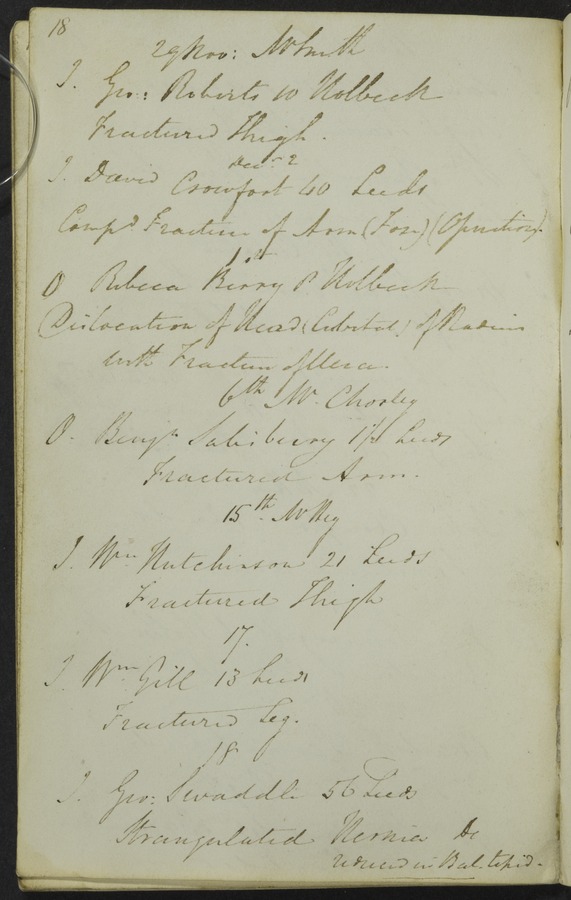 18
29 Nov: Mr Smith
I. Geo: Roberts 10 Holbeck
Fractured Thigh.
Decr 2
I. David Crowfoot 40 Leeds
Compd Fracture of Arm (Fore) (Operation)
O Rebeca Berry 8 Holbeck
Dislocation of Head (Cubital) of Radius
with Fracture of Ulna.
6th Mr. Chorley
O. Benjn Salisbury 1½ Leeds
Fractured Arm.
15th Mr Hey
I. Wm Hutchinson 21 Leeds
Fractured Thigh
17.
I. Wm Gill 13 Leeds
Fractured Leg.
18
I. Geo: Swaddle 56 Leeds
Strangulated Hernia
reduced in Bal. tepid.